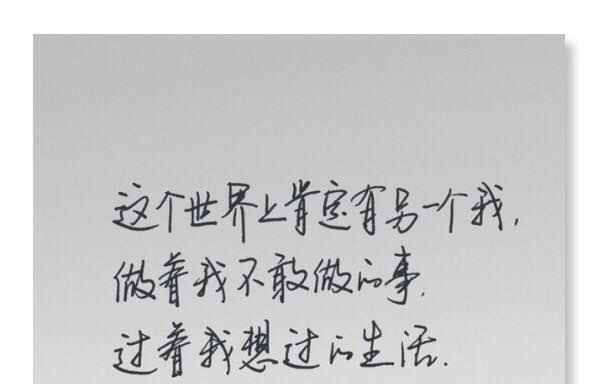 这个世界上肯定有另一个我，
做着我不敢做的事，
过着我想过的生活．